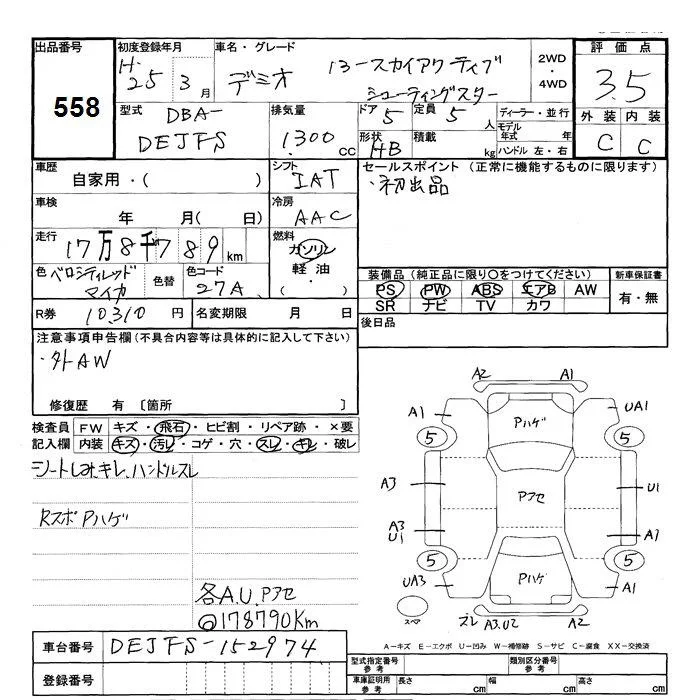 出品番号
558
初度登録年月
H-25 3月
車名・グレード
デミオ
13-スカイアクティブ
シューティングスター
2WD
・
4WD
評価点
3.5
外装 内装
C C
型式
DBA-
DEJFS
排気量
1.300cc
ドア 5
定員 5人
形状 HB
積載 kg
ディーラー・並行
モデル年式 年
ハンドル 左・右
車歴
自家用・( )
シフト
IAT
セールスポイント (正常に機能するものに限ります)
・初出品
車検
年 月( 日)
冷房
AAC
走行
17万8千789km
燃料
ガソリン
軽油
・( )
色 ベロシティレッドマイカ
色替
色コード
27A
装備品 (純正品に限り○をつけてください)
PS PW ABS エアB AW
SR ナビ TV カワ
新車保証書
有・無
R券 10,310円
名変期限 月 日
後日品
注意事項申告欄 (不具合内容等は具体的に記入して下さい)
・外AW
修復歴 有 [箇所 ]
検査員記入欄
FW キズ・飛石・ヒビ割・リペア跡・×要
内装 キズ・汚レ・コゲ・穴・スレ・キレ・破レ
シートしみ、キレ、ハンドルスレ
Rスポ Pハゲ
各A.U.Pアセ
178790Km
A2 A1
A1 UA1
Pハゲ
5 5
A3 U1
Pアセ
A3
U1
A1
5 5
Pハゲ
UA3 A1
スペア
ズレ A3.U2 A2
A-キズ E-エクボ U-凹み W-補修跡 S-サビ C-腐食 XX-交換済
車台番号 DEJFS-152974
登録番号
型式指定番号 参考
類別区分番号 参考
車庫証明用 参考
長さ cm 幅 cm 高さ cm